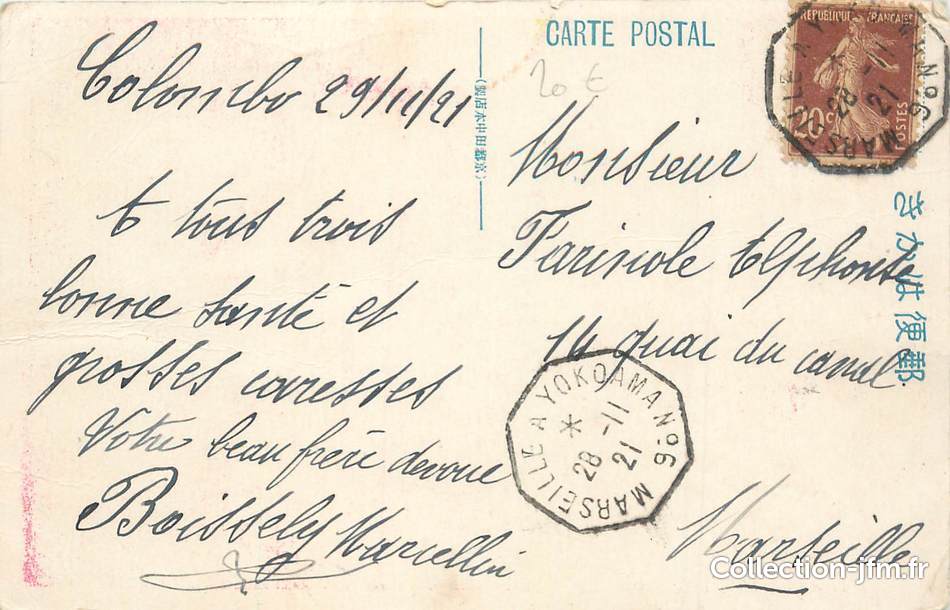 CARTE POSTAL
Colombo 29/11/21
A tous trois
bonne santé et
grosses caresses
Votre beau frère devoué
Boissely Marcellin
20 €
Monsieur
Farinole Alphonse
14 quai du canal
Marseille
REPUBLIQUE FRANÇAISE
20c
POSTES
MARSEILLE A YOKOAMA No 6
* 28 -11 21
MARSEILLE A YOKOAMA No 6
* 28 -11 21
きかは便郵
Collection-jfm.fr